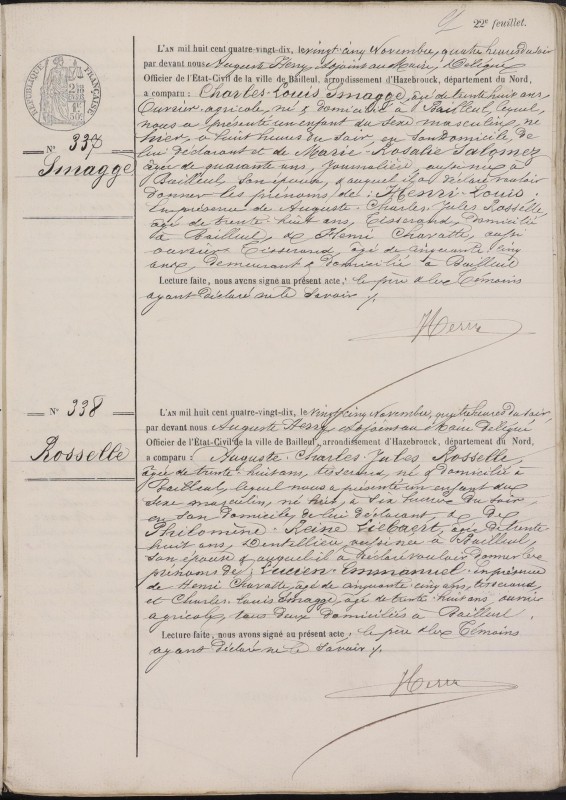 22e feuillet.
RÉPUBLIQUE FRANÇAISE
L'AN mil huit cent quatre-vingt-dix, le vingt cinq Novembre, quatre heures du soir
par devant nous Auguste Herry Adjoint au Maire Délégué
Officier de l'État-Civil de la ville de Bailleul, arrondissement d'Hazebrouck, département du Nord,
a comparu : Charles-Louis Smagge, âgé de trente huit ans,
Ouvrier agricole, né & domicilié à Bailleul, lequel
nous a présenté un enfant du sexe masculin, né
hier, à huit heures du soir, en son domicile, de
lui déclarant et de Marie-Rosalie Salomez
N° 337
Smagge
âgée de quarante ans, journalière aussi née à
Bailleul, son épouse, & auquel il a déclaré vouloir
donner les prénoms de : Henri-Louis.
En présence de Auguste-Charles-Jules Rosselle,
âgé de trente-huit ans, Tisserand, domicilié
à Bailleul, & Henri Chavatte, aussi
ouvrier Tisserand âgé de cinquante-cinq
ans, demeurant & domicilié à Bailleul
Lecture faite, nous avons signé au présent acte, le père & les Témoins
ayant déclaré ne le savoir /.
Herry
N° 338
Rosselle
L'AN mil huit cent quatre-vingt-dix, le vingt cinq Novembre, quatre heures du soir,
par devant nous Auguste Herry Adjoint au Maire Délégué
Officier de l'État-Civil de la ville de Bailleul, arrondissement d'Hazebrouck, département du Nord,
a comparu : Auguste-Charles-Jules Rosselle,
âgé de trente-huit ans, tisserand, né & domicilié à
Bailleul, lequel nous a présenté un enfant du
sexe masculin, né hier, à six heures du soir,
en son domicile, de lui déclarant, & de
Philomène-Reine Liebaert, âgée de trente-
huit ans, Dentellière aussi née à Bailleul,
son épouse & auquel il a déclaré vouloir donner les
prénoms de : Lucien-Emmanuel. en présence
de Henri Chavatte, âgé de cinquante cinq ans, tisserand,
et Charles-Louis Smagge, âgé de trente-huit ans, ouvrier
agricole, tous deux domiciliés à Bailleul.
Lecture faite, nous avons signé au présent acte, le père & les Témoins
ayant déclaré ne le savoir /.
Herry